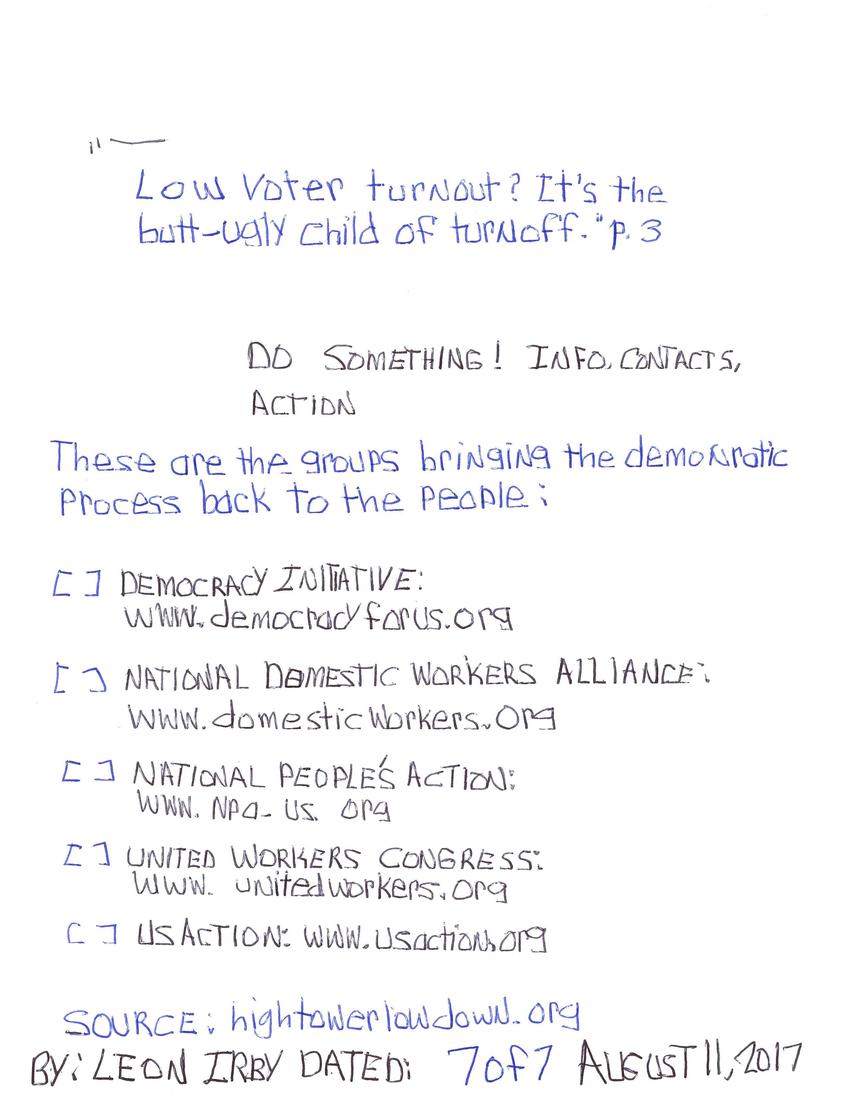 "—
Low Voter turnout? It's the
butt-ugly child of turnoff." p. 3
DO SOMETHING! INFO, CONTACTS,
ACTION
These are the groups bringing the democratic
process back to the people:
[ ] DEMOCRACY INITIATIVE:
www.democracyforus.org
[ ] NATIONAL DOMESTIC WORKERS ALLIANCE:
www.domesticworkers.org
[ ] NATIONAL PEOPLE'S ACTION:
www.npa-us.org
[ ] UNITED WORKERS CONGRESS:
www.unitedworkers.org
[ ] USACTION: www.usaction.org
SOURCE: hightowerlowdown.org
BY: LEON IRBY DATED: 7of7 AUGUST 11, 2017